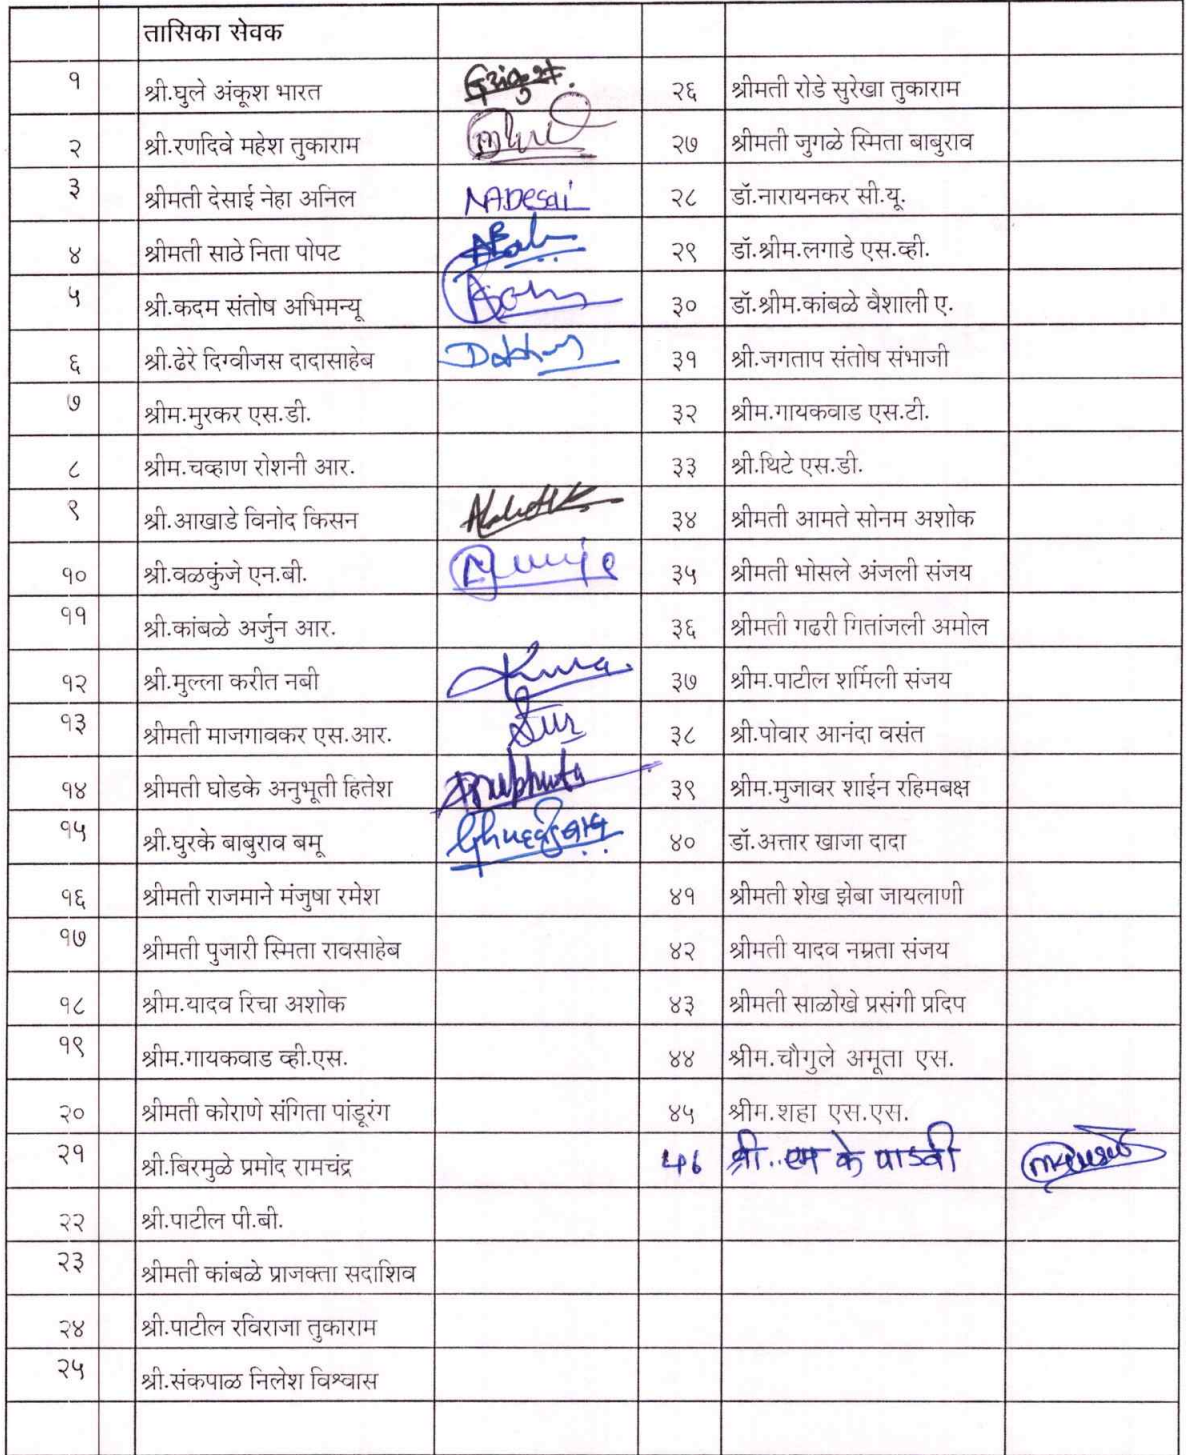 तासिका सेवक
१ श्री.घुले अंकूश भारत २६ श्रीमती रोडे सुरेखा तुकाराम
२ श्री.रणदिवे महेश तुकाराम २७ श्रीमती जुगळे स्मिता बाबुराव
३ श्रीमती देसाई नेहा अनिल N.A.Desai २८ डॉ.नारायनकर सी.यू.
४ श्रीमती साठे निता पोपट २९ डॉ.श्रीम.लगाडे एस.व्ही.
५ श्री.कदम संतोष अभिमन्यू ३० डॉ.श्रीम.कांबळे वैशाली ए.
६ श्री.ढेरे दिग्वीजस दादासाहेब ३१ श्री.जगताप संतोष संभाजी
७ श्रीम.मुरकर एस.डी. ३२ श्रीम.गायकवाड एस.टी.
८ श्रीम.चव्हाण रोशनी आर. ३३ श्री.थिटे एस.डी.
९ श्री.आखाडे विनोद किसन ३४ श्रीमती आमते सोनम अशोक
१० श्री.वळकुंजे एन.बी. ३५ श्रीमती भोसले अंजली संजय
११ श्री.कांबळे अर्जुन आर. ३६ श्रीमती गढरी गितांजली अमोल
१२ श्री.मुल्ला करीत नबी ३७ श्रीम.पाटील शर्मिली संजय
१३ श्रीमती माजगावकर एस.आर. ३८ श्री.पोवार आनंदा वसंत
१४ श्रीमती घोडके अनुभूती हितेश ३९ श्रीम.मुजावर शाईन रहिमबक्ष
१५ श्री.घुरके बाबुराव बमू ४० डॉ.अत्तार खाजा दादा
१६ श्रीमती राजमाने मंजुषा रमेश ४१ श्रीमती शेख झेबा जायलाणी
१७ श्रीमती पुजारी स्मिता रावसाहेब ४२ श्रीमती यादव नम्रता संजय
१८ श्रीम.यादव रिचा अशोक ४३ श्रीमती साळोखे प्रसंगी प्रदिप
१९ श्रीम.गायकवाड व्ही.एस. ४४ श्रीम.चौगुले अमूता एस.
२० श्रीमती कोराणे संगिता पांडूरंग ४५ श्रीम.शहा एस.एस.
२१ श्री.बिरमुळे प्रमोद रामचंद्र ४६ श्री..एम के पाडवी
२२ श्री.पाटील पी.बी.
२३ श्रीमती कांबळे प्राजक्ता सदाशिव
२४ श्री.पाटील रविराजा तुकाराम
२५ श्री.संकपाळ निलेश विश्वास